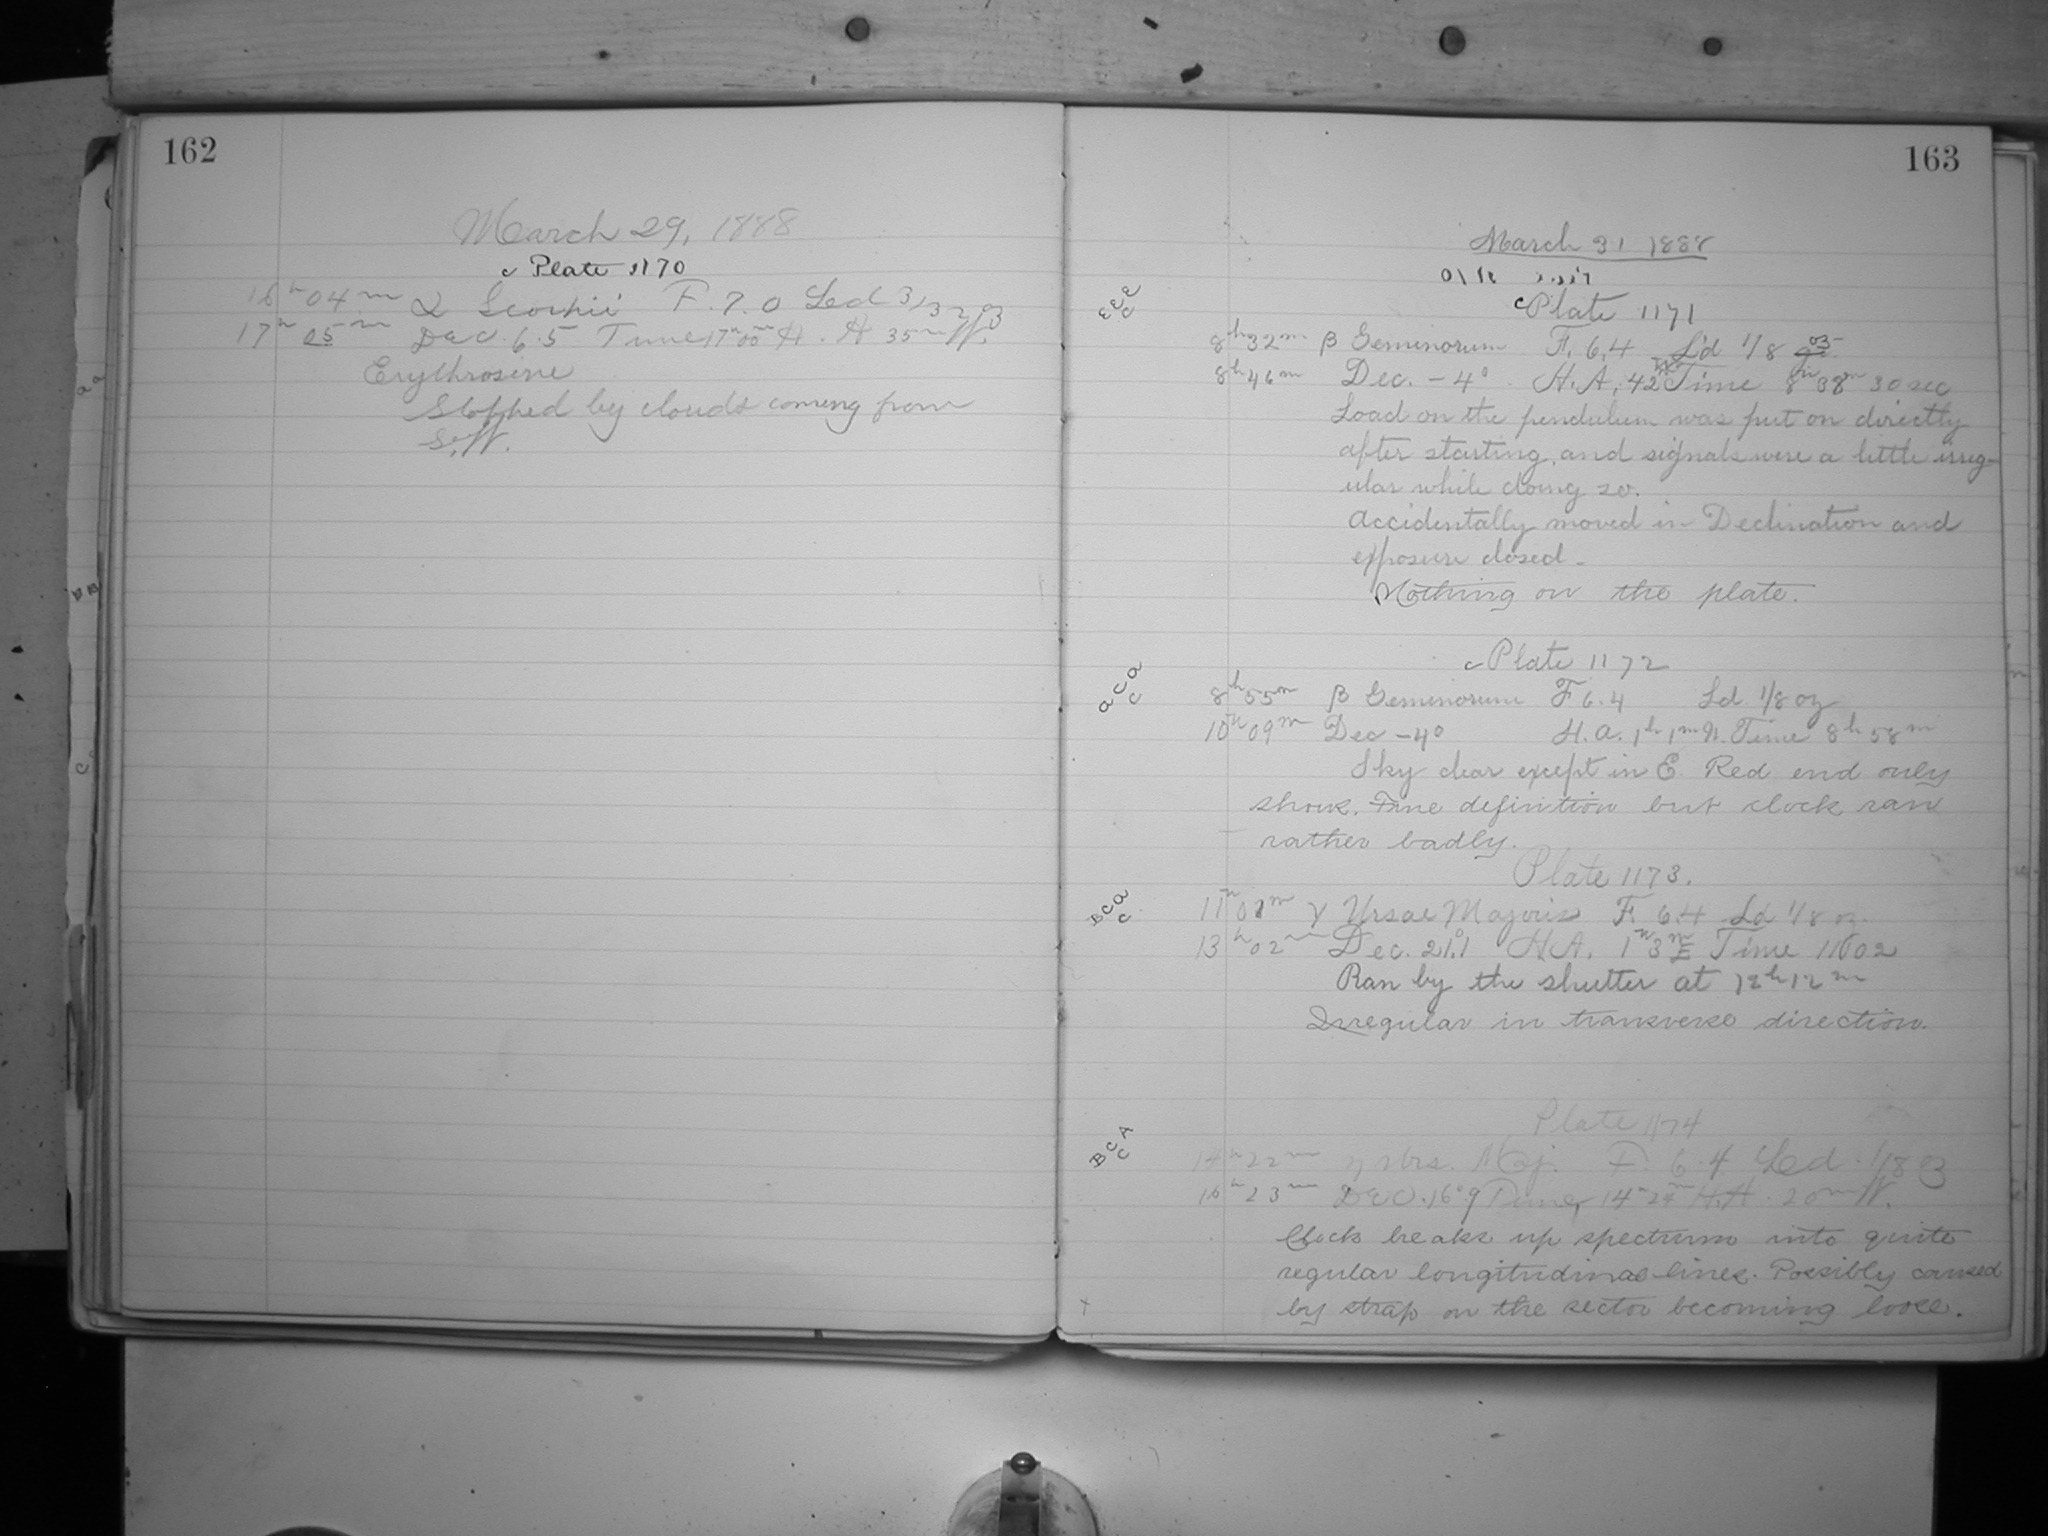 162
March 29, 1888
c Plate 1170
16h 04m α Scorpii F. 7.0 Led 3/32 oz
17h 05m Dec. 6.5 Time 17h 00m H. A 35m W.
Erythrosine
Stopped by clouds coming from
S.W.
163
March 31 1888
c Plate 1171
EEE
C
8h 32m β Geminorum F. 6.4 L'd 1/8 oz
8h 46m Dec. -4° H.A. 42m W. Time 8h 38m 30 sec
Load on the pendulum was put on directly
after starting, and signals were a little irreg-
ular while doing so.
Accidentally moved in Declination and
exposure closed -
Nothing on the plate.
c Plate 1172
aca
c
8h 55m β Geminorum F 6.4 Ld. 1/8 oz
10h 09m Dec -4° H.A. 1h 1m W. Time 8h 58m
Sky clear except in E. Red end only
shows. Fine definition but clock ran
rather badly.
Plate 1173.
BCa
c
11h 01m γ Ursae Majoris F. 6.4 Ld 1/8 oz.
13h 02m Dec. 21.1 H.A. 1h 3m E Time 11h 02
Ran by the shutter at 12h 12m
Irregular in transverse direction.
Plate 1174
BCA
C
14h 22m η Urs. Maj. F. 6.4 Led. 1/8 oz
16h 23m Dec. 16°.9 Time, 14h 24m H.A. 20m W.
Clock breaks up spectrum into quite
regular longitudinal lines. Possibly caused
by strap on the sector becoming loose.